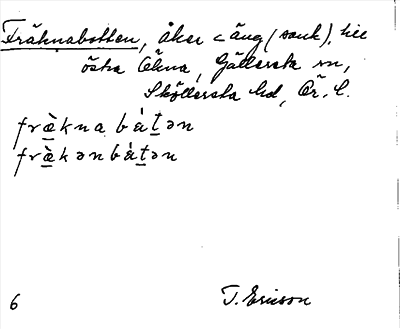 Fräknabotten, åker < äng (sank), till
östra Ökna, Gällersta sn,
Sköllersta hd, Ör. l.
fræ̀kna bátən
fræ̀kənbátən
6 T. Ericson